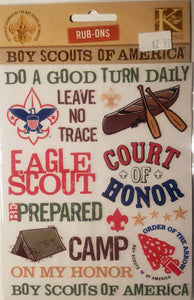 RUB-ONS
K
BOY SCOUTS OF AMERICA
DO A GOOD TURN DAILY
LEAVE
NO
TRACE
EAGLE
SCOUT
COURT
OF
HONOR
BE PREPARED
CAMP
ON MY HONOR
ORDER OF THE ARROW
BOY SCOUTS OF AMERICA
BOY SCOUTS OF AMERICA